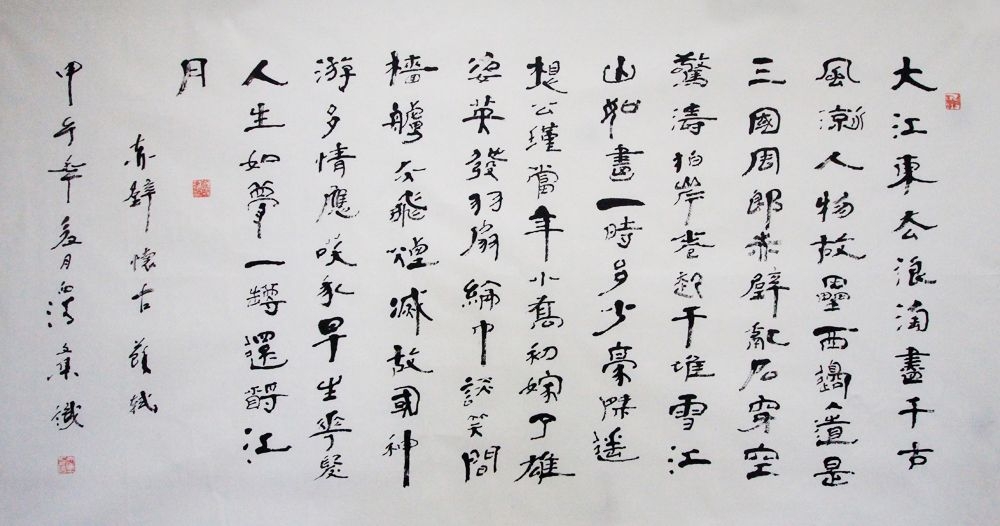 大江東去浪淘盡千古
風流人物故壘西邊人道是
三國周郎赤壁亂石穿空
驚濤拍岸卷起千堆雪江
山如畫一時多少豪傑遙
想公瑾當年小喬初嫁了雄
姿英發羽扇綸巾談笑間
檣艫灰飛煙滅故國神
游多情應笑我早生華髮
人生如夢一罇還酹江
月
赤壁懷古 蘇軾
甲午年夏月